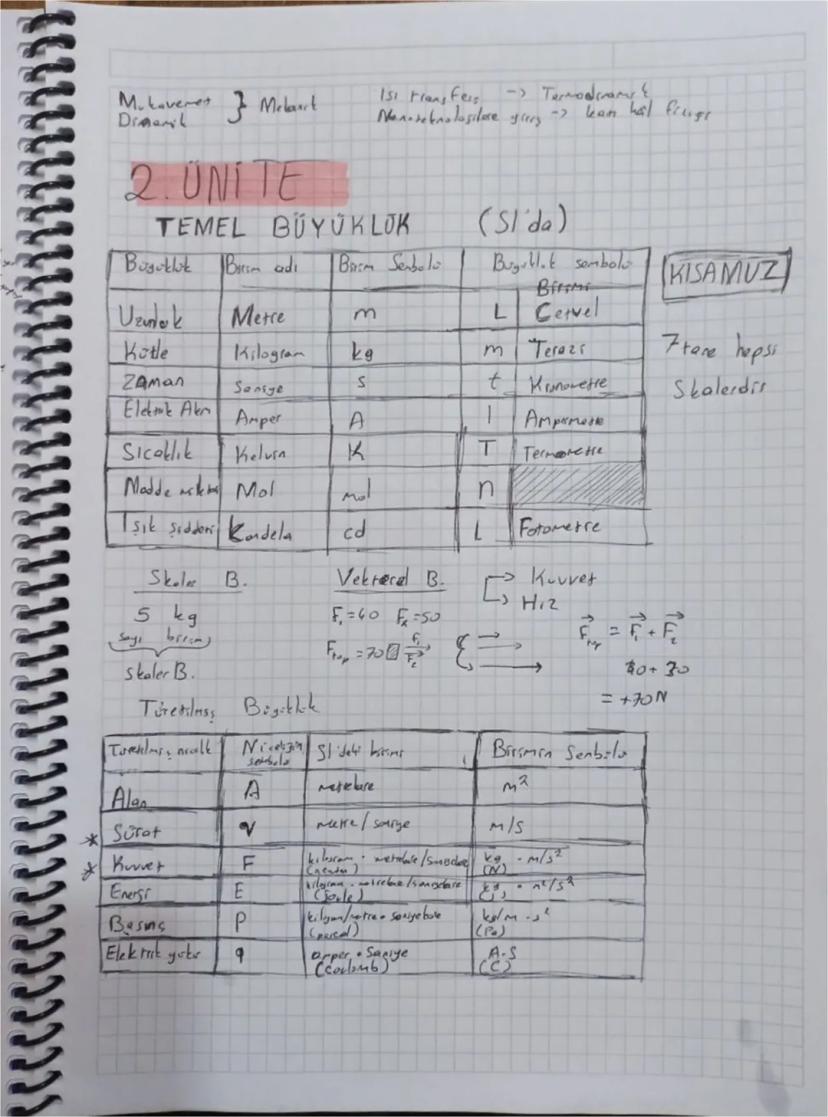 Mukavemet } Mekanik
Dinamik
Isı transferi -> Termodinamik
Nanoteknolojilere giriş -> katı hal fiziği
2. ÜNİTE
TEMEL BÜYÜKLÜK (SI'da)
Büyüklük Birim adı Birim Sembolü Büyüklük sembolü
Birimi
Uzunluk Metre m L Cetvel
Kütle Kilogram kg m Terazi
Zaman Saniye s t Kronometre
Elektrik Akım Amper A I Ampermetre
Sıcaklık Kelvin K T Termometre
Madde miktarı Mol mol n
Işık şiddeti Kandela cd L Fotometre
KISAMUZ
7 tane hepsi
Skalerdir
Skaler B.
5 kg
sayı birim
Skaler B.
Vektörel B. Kuvvet
Hız
F₁=40 F₂=50
Ftop=70 F₁ F₂
Ftop = F₁ + F₂
40+30
= +70N
Türetilmiş Büyüklük
Türetilmiş nicelik Niceliğin sembolü SI'deki birimi Birimin Sembolü
Alan A metrekare m²
* Sürat v metre/saniye m/s
* Kuvvet F kilogram · metrekare/saniyekare (newton) kg · m/s² (N)
Enerji E kilogram · metrekare/saniyekare (joule) kg · m²/s² (J)
Basınç P kilogram/metre · saniyekare (pascal) kg/m · s² (Pa)
Elektrik yükü q amper · Saniye (coulomb) A.S (C)